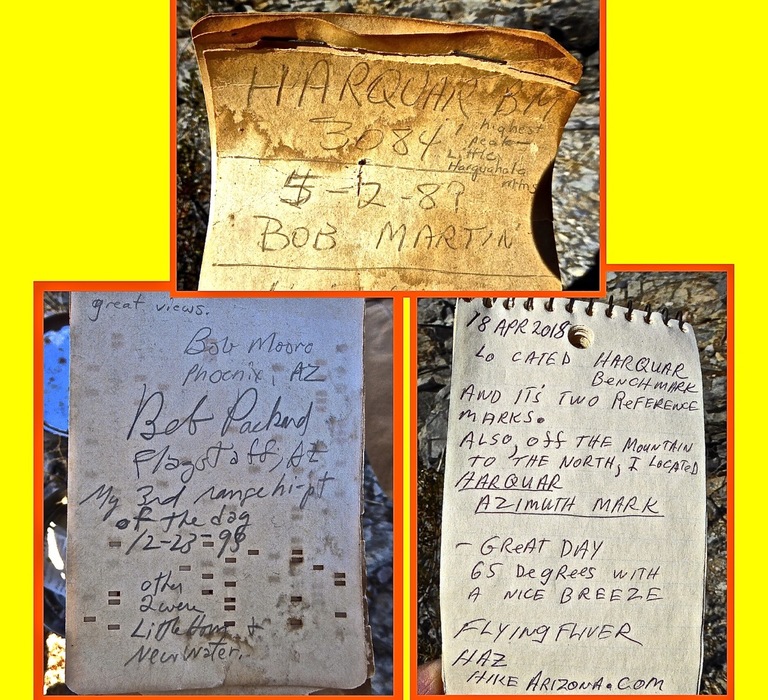 HARQUAR BM
3084' highest
peak—
Little
Harquahala
mtns
5-2-89
BOB MARTIN
great views.
Bob Mooro
Phoenix, AZ
Bob Packard
Flagstaff, AZ
My 3rd range hi-pt
of the day
12-23-98
other
2 were
Little Horn +
New Water.
18 APR 2018
LoCATED HARQUAR
BENCHMARK
AND ITS' TWO REFERENCE
MARKS.
ALSO, OFF THE MOUNTAIN
TO THE NORTH, I LOCATED
HARQUAR
AZIMUTH MARK
- GReAT DAY
65 DegReeS WITH
A NICE BREEZE
FLYING FLIVER
HAZ
HIKE ARIZONA.COM